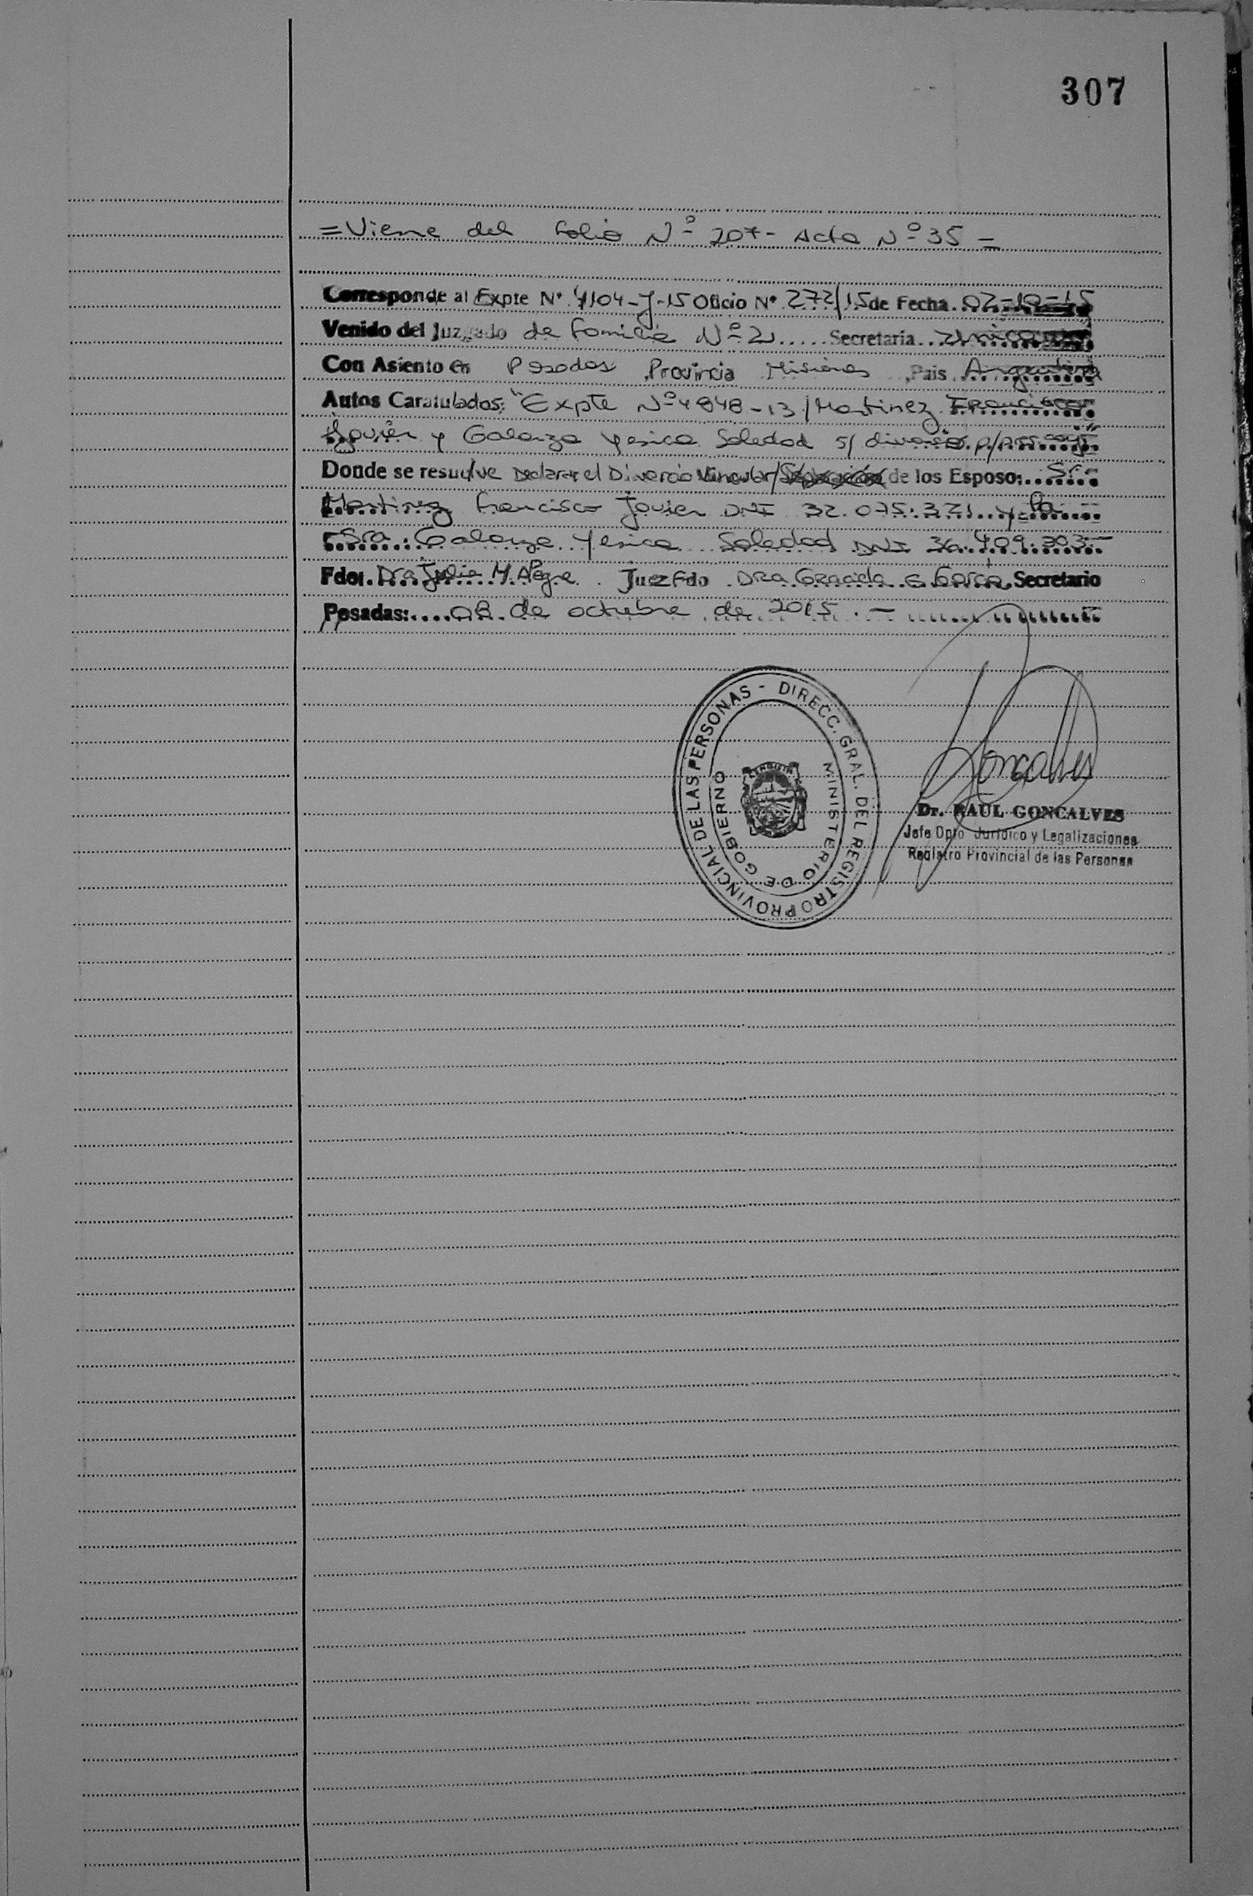 307
= Viene del folio Nº 207 - Acta Nº 35 =
Corresponde al Expte Nº 4104-J-15 Oficio Nº 272/15 de Fecha 02-10-15
Venido del Juzgado de Familia Nº 2 Secretaria
Con Asiento en Posadas Provincia Misiones Pais Argentina
Autos Caratulados: "Expte Nº 4848-13/Martinez Francisco
Javier y Galarza Yesica Soledad s/ divorcio p/
Donde se resuelve Declarar el Divorcio Vincular/Separación de los Esposo: Sr.
Martinez Francisco Javier DNI 32.075.321 y la
Sra. Galarza Yesica Soledad DNI 36.409.303-
Fdo. Dra Julia M. Alegre Juez Fdo Dra Graciela G. Secretario
Posadas: 08 de octubre de 2015.-
DIRECC. GRAL. DEL REGISTRO PROVINCIAL DE LAS PERSONAS -
MINISTERIO DE GOBIERNO
Goncalves
Dr. RAUL GONCALVES
Jefe Dpto Juridico y Legalizaciones
Registro Provincial de las Personas